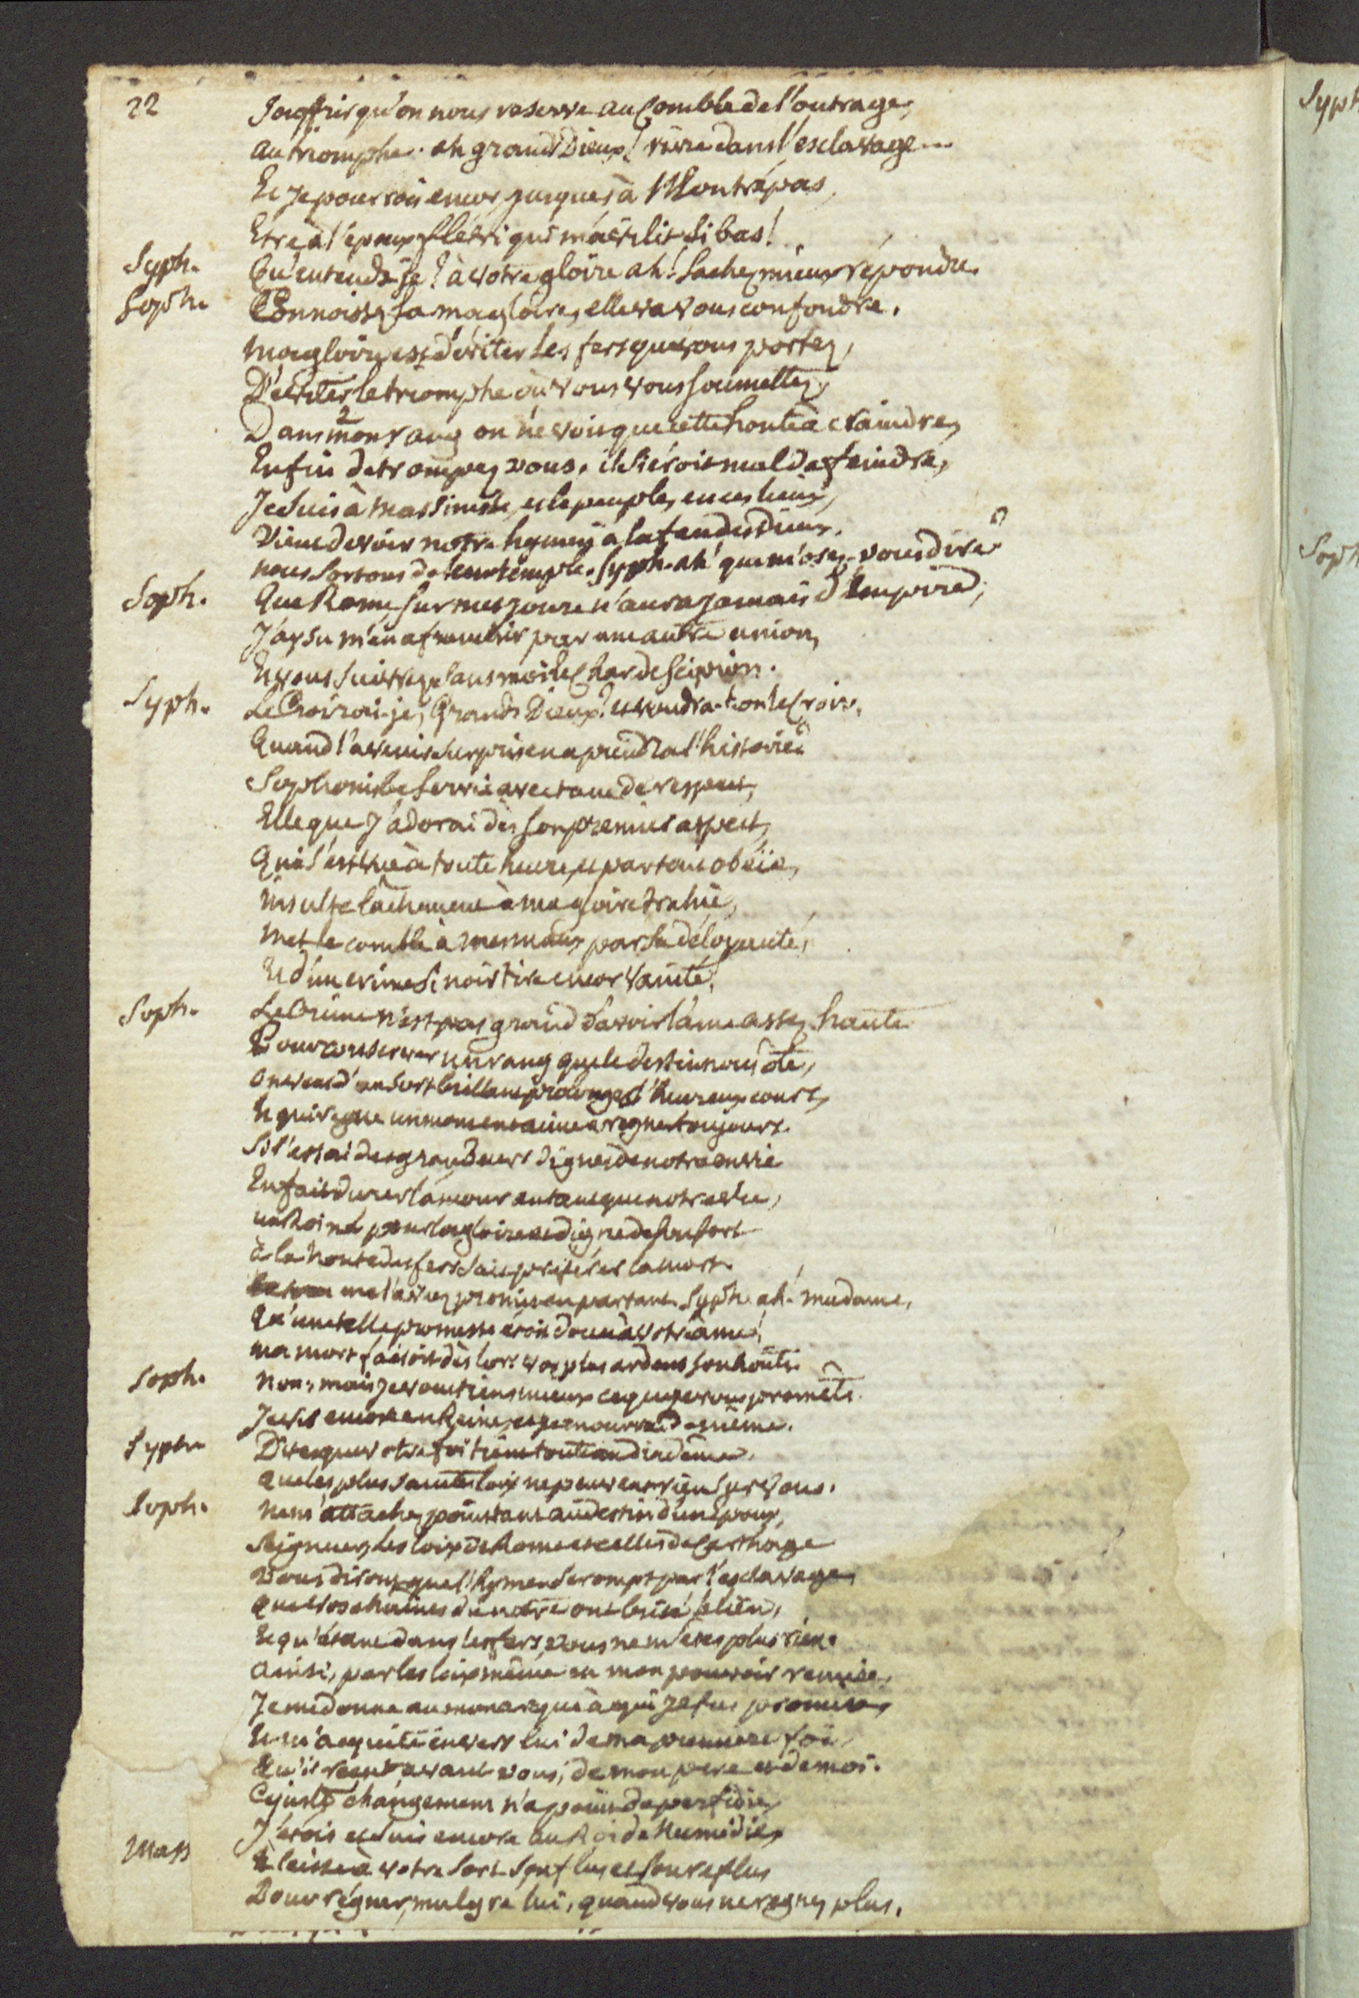 22
Souffrir qu'on nous reserve au Comble de l'outrage,
au triomphe. ah grands Dieux! vivre dans l'esclavage...
Et je pourrois encor, jusques à mon trépas,
Etre à l'époux flétri qui m'avilit si bas!
Syph. Qu'entends-je? à votre gloire ah! Sachez mieux répondre.
Soph. Connoissez la ma gloire, elle va vous confondre.
ma gloire est d'éviter les fers que vous portez,
D'éviter le triomphe où vous vous soumettez,
Dans mon rang on ne voit que cette honte à craindre,
Enfin détrompez vous. il siéroit mal de feindre,
Je suis à Massinisse, et le peuple, en ces lieux,
Vient de voir notre hymen à la face des Dieux.
nous sortons de leur temple. Syph. ah! que m'osez-vous dire?
Soph. Que Rome sur mes jours n'aura jamais d'Empire,
J'ay su m'en afranchir par une autre union,
Et vous suivrez sans moi le Char de Scipion.
Syph. Le Croirai-je, Grands Dieux? et voudra-t-on le Croire,
Quand l'avenir surpris en aprendra l'histoire?
Sophonisbe servie avec tant de respect,
Elle que j'adorai dès son premier aspect,
Qui s'est vue à toute heure, et partout obéïe,
insulte lâchement à ma gloire trahie,
met le comble à mes maux par sa déloyauté,
Et d'un crime si noir tire encor vanité!
Soph. Le Crime n'est pas grand d'avoir l'ame assez haute
Pour conserver un rang que le destin nous ôte,
on veut d'un sort brillant prolonger l'heureux cours,
Et qui regne un moment aime à regner toujours.
Si l'essai des grandeurs dignes de notre envie
En fait durer l'amour autant que notre vie,
un Roi né pour la gloire et digne de son sort
à la honte des fers sait préférer la mort.
me l'aviez promis en partant. Syph. ah! madame,
Qu'une telle promesse étoit douce à votre ame!
ma mort faisoit dès lors vos plus ardens souhaits.
Soph. Non, mais je vous tiens mieux ce que je vous promets.
Je vis encore en Reine, et je mourrai de même.
Syph. Dites que votre foi tient toute au diadême,
que les plus saintes loix ne peuvent rien sur vous.
Soph. Ne m'attachez point tant au destin d'un époux,
Seigneur, les loix de Rome et celles de Carthage
Vous diront que l'hymen se rompt par l'esclavage,
que vos chaînes du notre ont brisé le lien,
Et qu'étant dans les fers, vous ne m'êtes plus rien.
Ainsi, par les loix même en mon pouvoir remise,
Je me donne au monarque à qui je fus promise,
Et m'acquitte envers lui de ma premiere foi,
Qu'il reçut avant vous, de mon pere et de moi.
Ce juste changement n'a point de perfidie,
J'étois et suis encore au Roi de Numidie,
Mass Et laisse à votre sort son flus et son reflus
Pour régner, malgré lui, quand vous ne regnez plus.
Syph
Soph